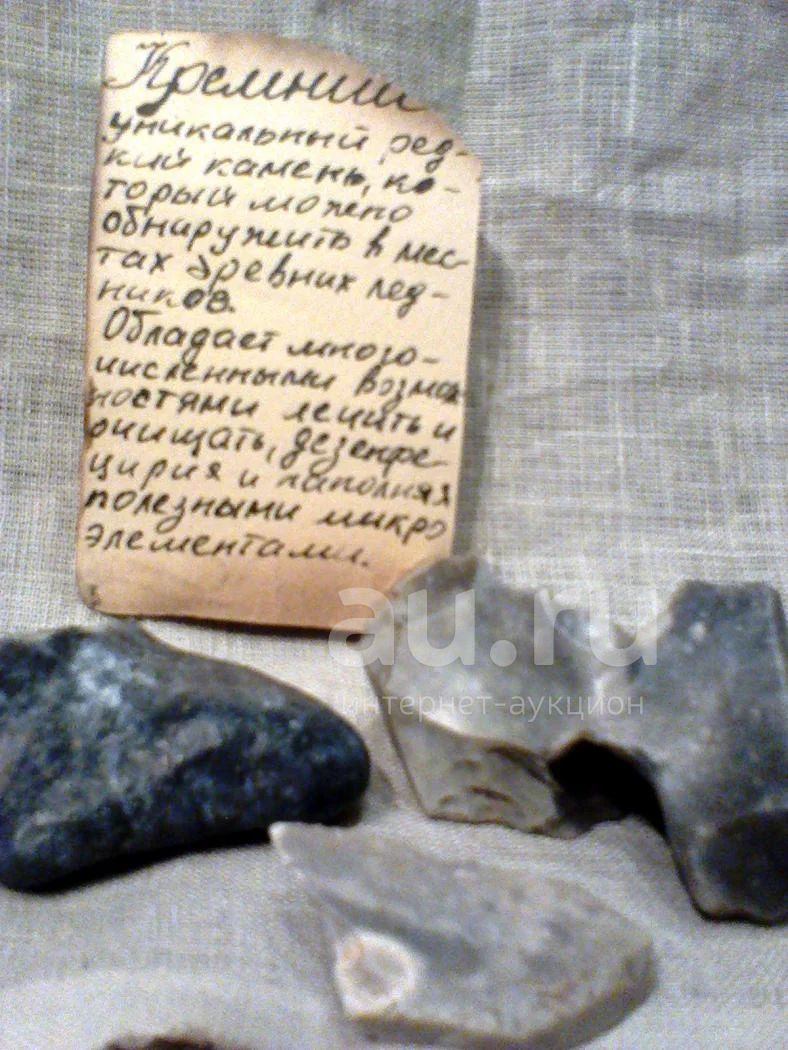 Кремний
уникальный ред-
кий камень, ко-
торый можно
обнаружить в мес-
тах древних лед-
ников.
Обладает много-
численными возмож
ностями лечить и
очищать, дезенфе-
цируя и наполняя
полезными микро
элементами.
au.ru
интернет-аукцион